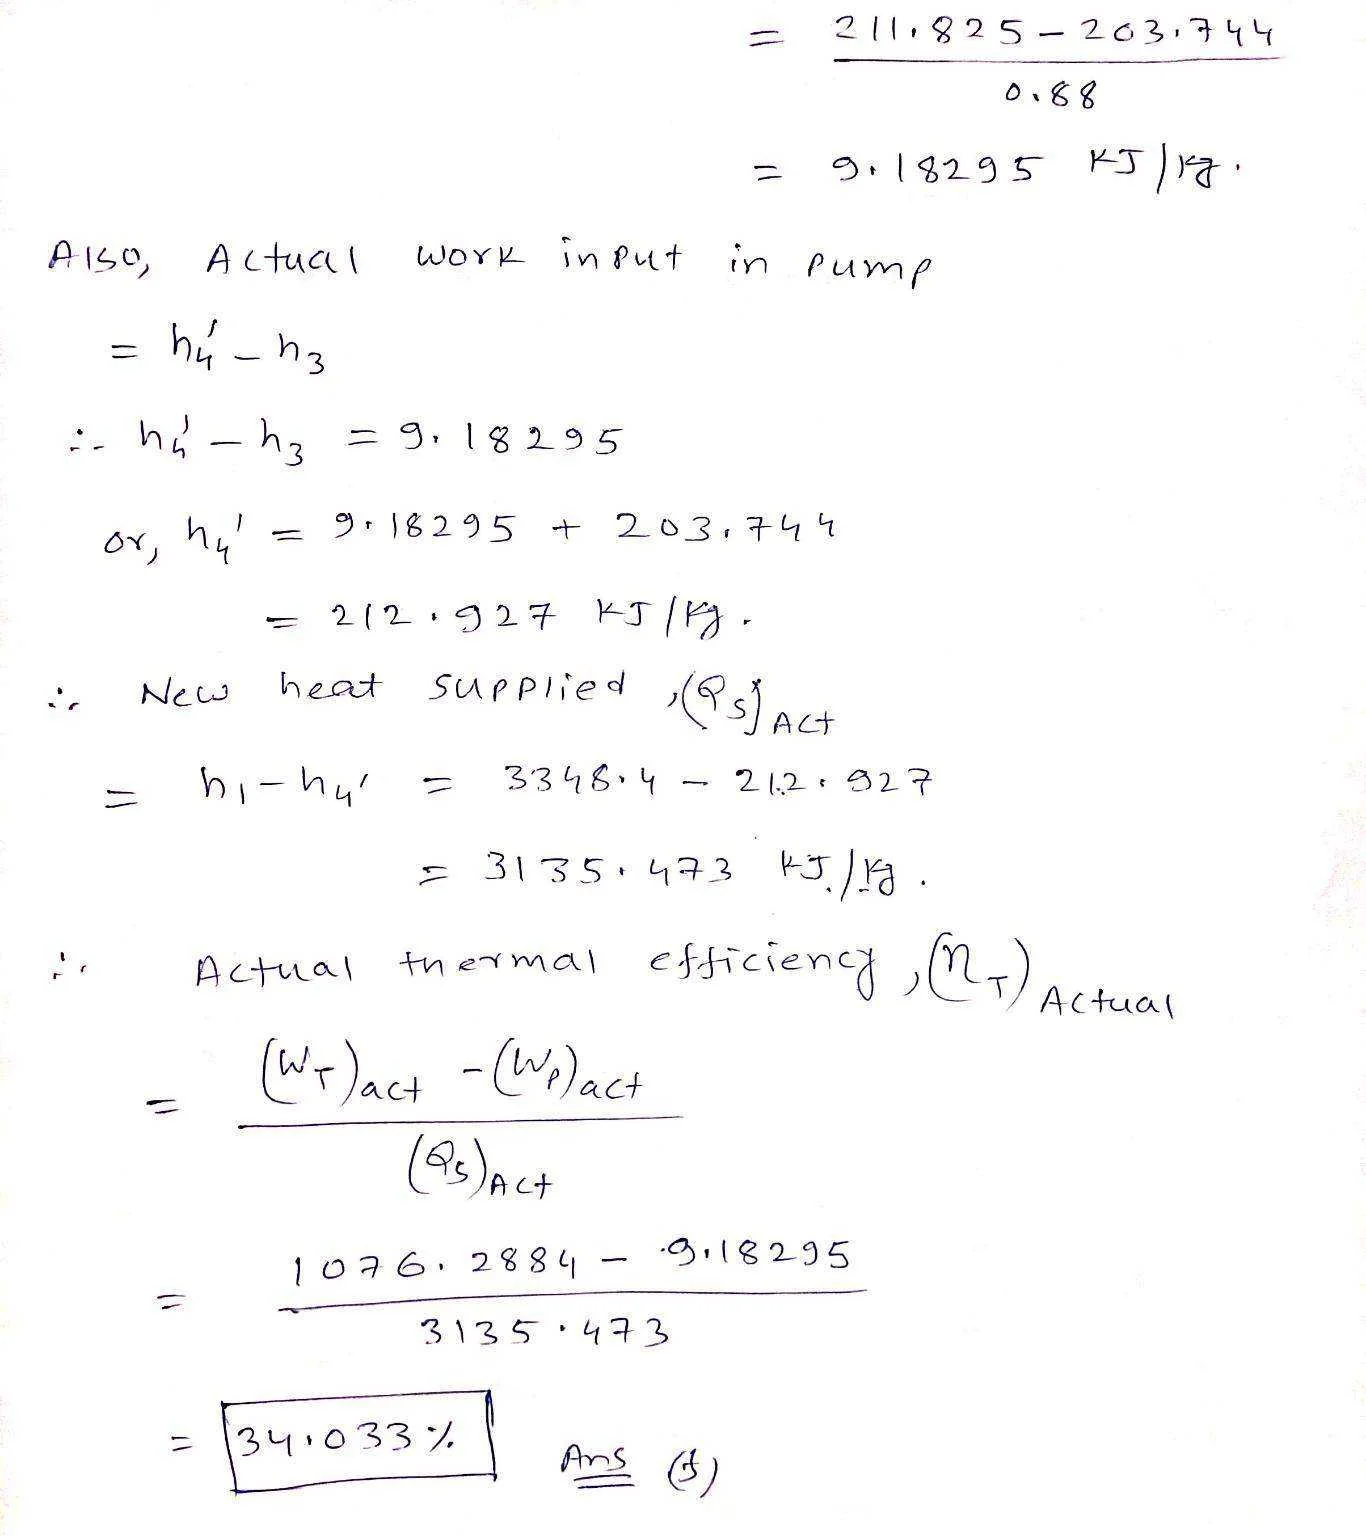 = 211.825 - 203.744
0.88
= 9.18295 KJ/kg.
Also, Actual work input in pump
= h4' - h3
∴ h4' - h3 = 9.18295
or, h4' = 9.18295 + 203.744
= 212.927 KJ/kg.
∴ New heat supplied, (Qs)Act
= h1 - h4' = 3348.4 - 212.927
= 3135.473 KJ/kg.
∴ Actual thermal efficiency, (ηT)Actual
= (WT)act - (WP)act
(Qs)Act
= 1076.2884 - 9.18295
3135.473
= 34.033%
Ans (f)